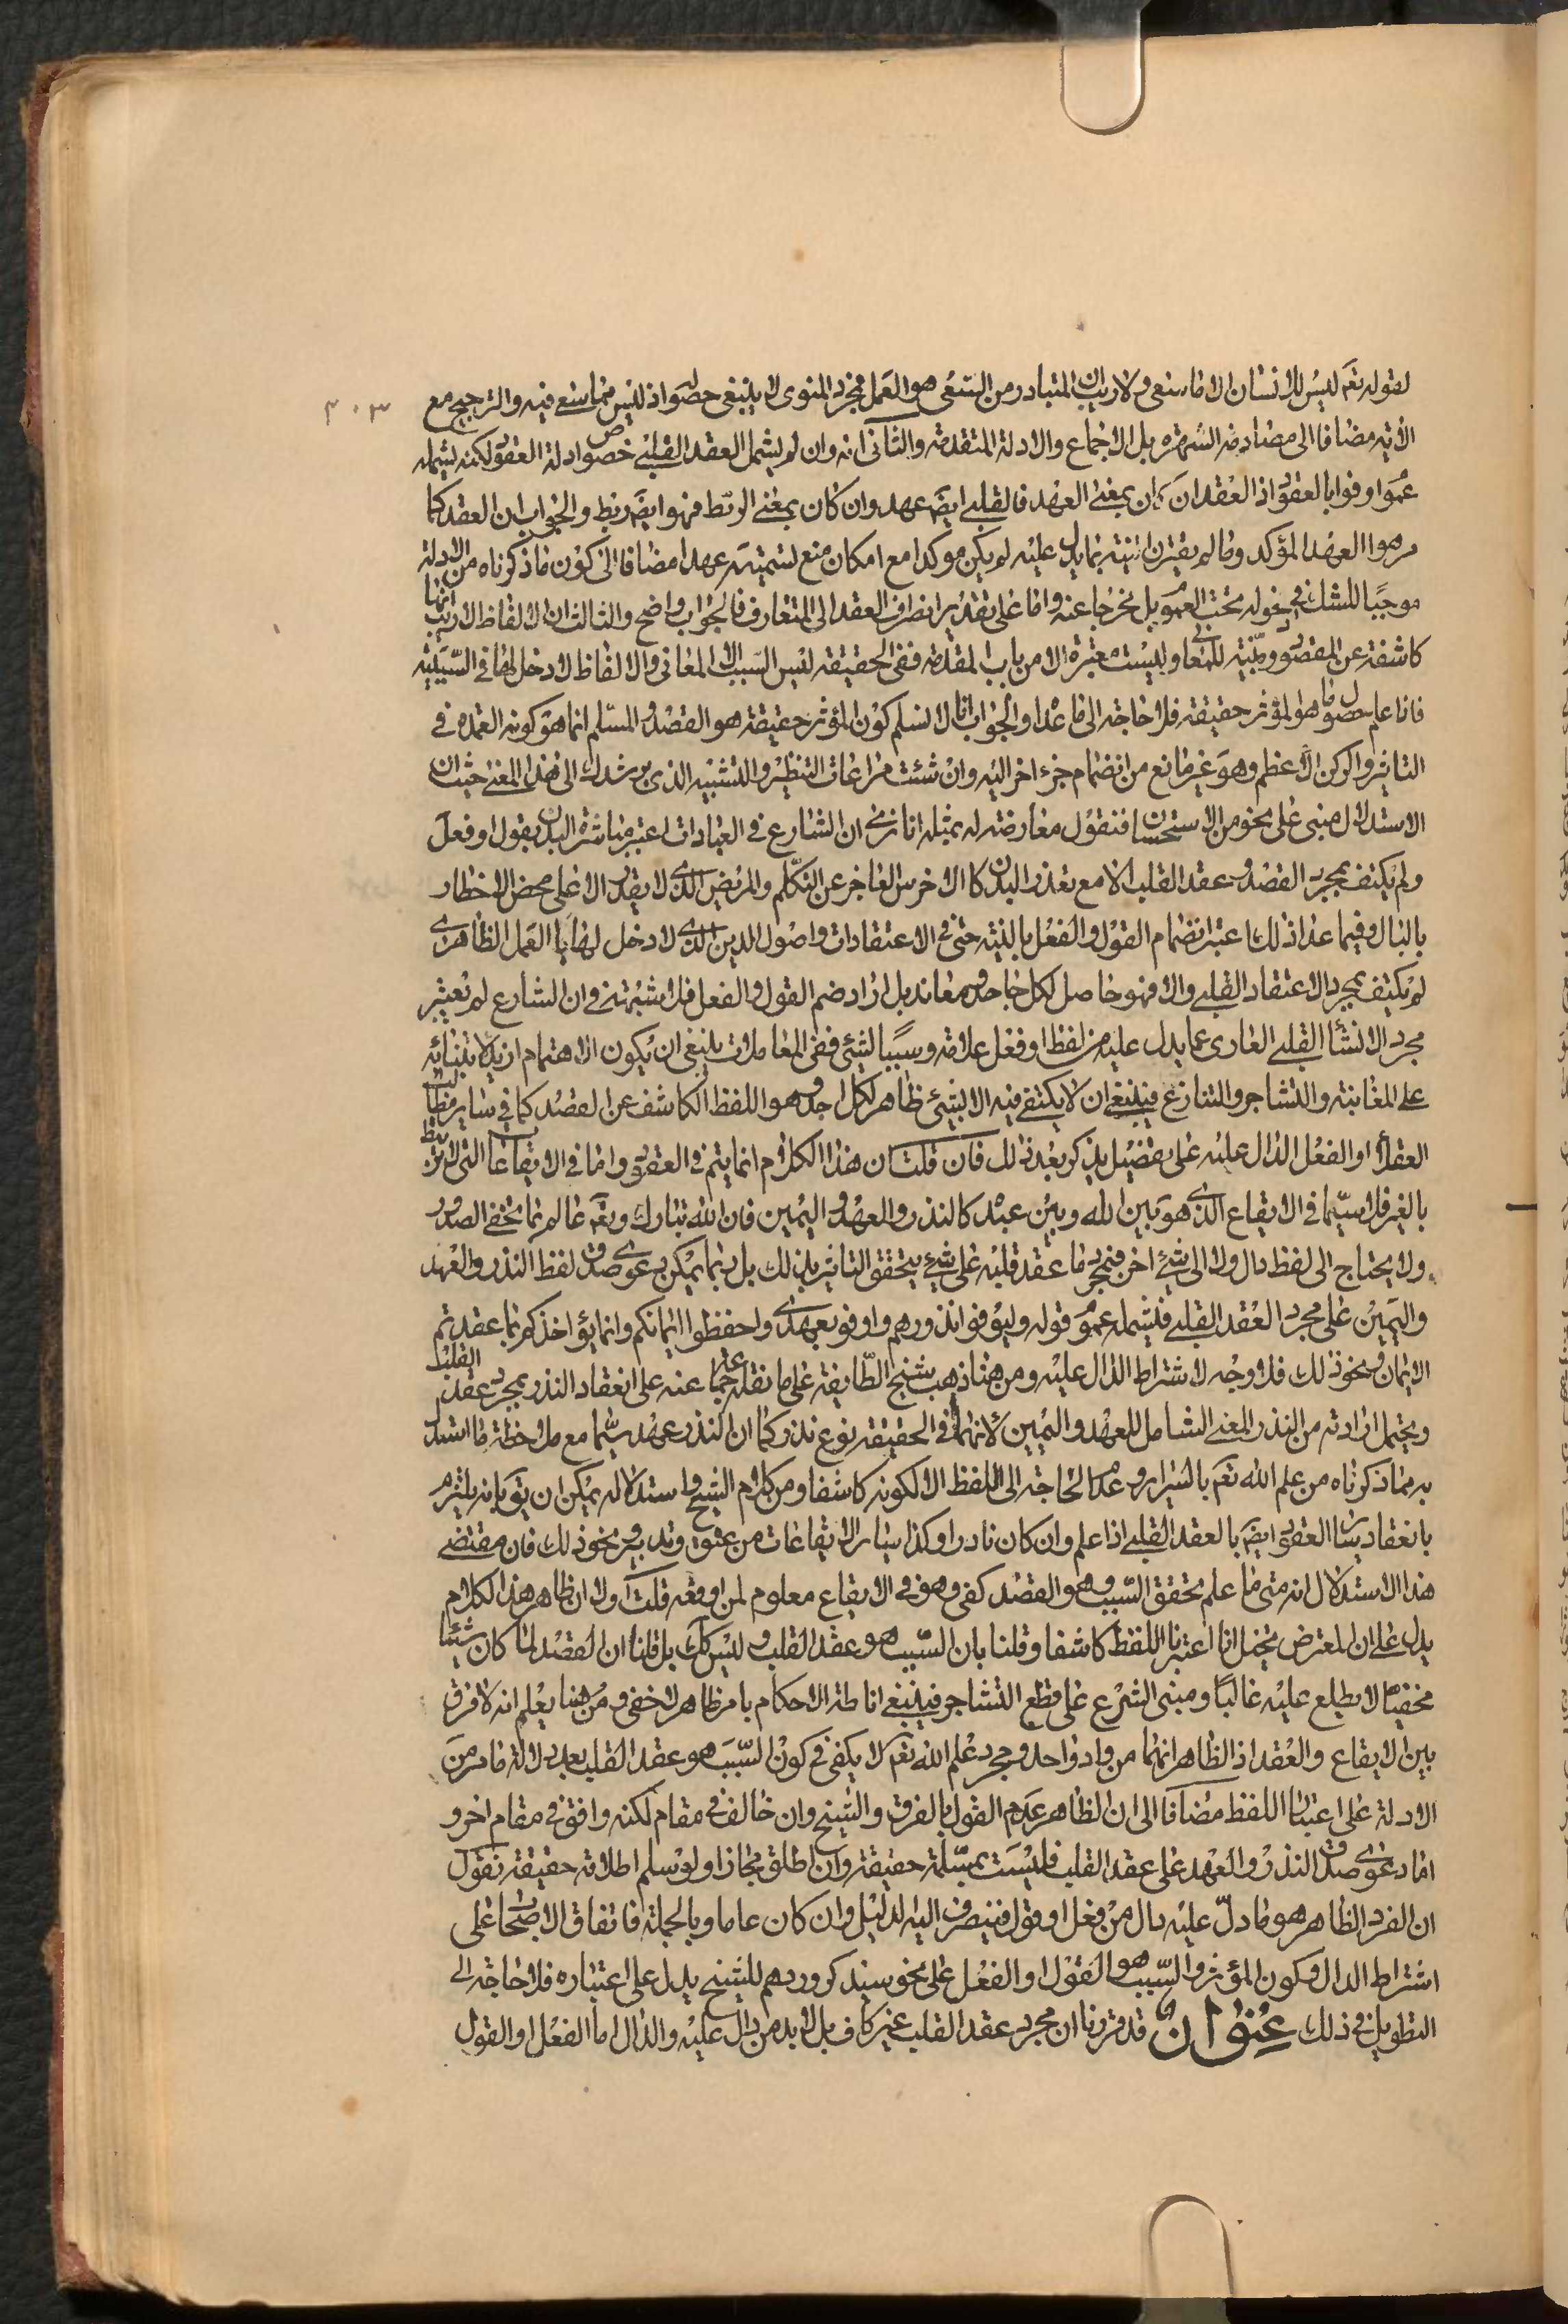 لقوله تعم ليس للانسان الا ما سعى ولا ريب ان المتبادر من السعى هو العمل فمجرد المنوى لا ينبغى حصوله اذ ليس مما سعى فيه والترجيح مع
٣٠٣
الآية مضافا الى مصادمة الشهرة بل الاجماع والادلة المتقدمة والثانى انه وان لم يشمل العقد القلبى خصوص ادلة العقود لكنه يشمله
عموم اوفوا بالعقود اذ العقد ان كان بمعنى العهد فالقلبى ايضَ عهد وان كان بمعنى الربط فهو ايضَ ربط والجواب ان العقد كما
مر هو العهد المؤكد وما لم يقترن النية بما يدل عليه لم يكن موكدا مع امكان منع تسميته عهدا مضافا الى كون ما ذكرناه من الادلة
موجبًا للشك فى دخوله تحت العموم بل مخرجا عنه واما على تقدير انصراف العقد الى المتعارف فالجواب واضح والثالث ان الالفاظ لا ريب انها
كاشفة عن المقصود ومبينة للمعانى وليست معتبرة الا من باب المقدمة ففى الحقيقة ليس السبب الا المعانى والالفاظ لا دخل لها فى السببية
فاذا علم حصول ما هو المؤثر حقيقة فلا حاجة الى ما عدا والجواب انا لا نسلم كون المؤثر حقيقة هو القصد والمسلم انما هو كونه العمدة فى
التاثير والركن الاعظم وهو غير مانع من انضمام جزء اخر اليه وان شئت مراعات التنظير والتشبيه الذى يرشدك الى هذا المعنى حيث ان
الاستدلال مبنى على نحو من الاستحسان فنقول معارضة له بمثله انا نرى ان الشارع فى العبادات اعتبر مباشرة البدن بقول او فعل
ولم يكتف بمجرد القصد وعقد القلب الا مع تعذر البدن كالاخرس العاجز عن التكلّم والمريض الذى لا يقدر الا على محض الاخطار
بالبال وفيما عدا ذلك اعتبر انضمام القول والفعل بالنية حتى فى الاعتقادات واصول الدين الذى لا دخل لها بالعمل الظاهرى
لم يكتف بمجرد الاعتقاد القلبى والا فهو حاصل لكل جاحد ومعاند بل اراد ضم القول والفعل فلا شبهة فى ان الشارع لم يعتبر
مجرد الانشاء القلبى العارى عما يدل عليه من لفظ او فعل علامة وسببًا لشئ ففى المعاملات ينبغى ان يكون الاهتمام ازيد لابتنائه
على المغابنة والتشاجر والتنازع فينبغى ان لا يكتفى فيه الا بشئ ظاهر لكل احد وهو اللفظ الكاشف عن القصد كما فى ساير مطالب
العقلاء او الفعل الدال عليه على تفصيل يذكر بعد ذلك فان قلت ان هذا الكلام انما يتم فى العقود واما فى الايقاعات التى لا ترتبط
بالغير فلا سيّما فى الايقاع الذى هو بين الله وبين عبده كالنذر والعهد واليمين فان الله تبارك وتعَم عالم بما تخفى الصدور
ولا يحتاج الى لفظ دال ولا الى شئ اخر فبمجرد ما عقد قلبه على شئ يتحقق التاثير بذلك بل ربما يمكن دعوى صدق لفظ النذر والعهد
واليمين على مجرد العقد القلبى فيشمله عموم قوله وليوفوا نذورهم واوفوا بعهدى واحفظوا ايمانكم وانما يؤاخذكم بما عقدتم
الايمان ونحو ذلك فلا وجه لاشتراط الدال عليه ومن هنا ذهب شيخ الطايفة على ما نقله جماعة عنه على انعقاد النذر بمجرد عقد القلب
ويحتمل ارادته من النذر المعنى الشامل للعهد واليمين لانهما فى الحقيقة نوع نذر كما ان النذر عهد سيّما مع ملاحظة ما استدل
به مما ذكرناه من علم الله تعَم بالسراير وعدم الحاجة الى اللفظ الا لكونه كاشفا ومن كلام الشيخ واستدلاله يمكن ان يقَ بانه يلتزم
بانعقاد ساير العقود ايضَ بالعقد القلبى اذا علم وان كان نادرا وكذا ساير الايقاعات من عتق وتدبير ونحو ذلك فان مقتضى
هذا الاستدلال انه متى ما علم تحقق السبب وهو القصد كفى وهو فى الايقاع معلوم لمن اوقعه قلت اولا ان ظاهر هذا الكلام
يدل على ان المعترض تخيل انا اعتبرنا اللفظ كاشفا وقلنا بان السبب هو عقد القلب وليس كلَك بل قلنا ان القصد لما كان شيئا
مخفيّا لا يطلع عليه غالبًا ومبنى الشرع على قطع التشاجر فينبغى اناطة الاحكام بامر ظاهر لا خفى ومن هنا يعلم انه لا فرق
بين الايقاع والعقد اذ الظاهر انهما من واد واحد ومجرد علم الله تعَم لا يكفى فى كون السبب هو عقد القلب بعد دلالة ما مر من
الادلة على اعتبار اللفظ مضافا الى ان الظاهر عدم القول بالفرق والشيخ وان خالف فى مقام لكنه وافق فى مقام اخر و
اما دعوى صدق النذر والعهد على عقد القلب فليست بمسلمة حقيقة وان اطلق مجازا ولو سلم اطلاقه حقيقة نقول
ان الفرد الظاهر هو ما دلّ عليه دال من فعل او قول فينصرف اليه الدليل وان كان عاما وبالجملة فاتفاق الاصحاب على
اشتراط الدال وكون المؤثر والسبب هو القول او الفعل على نحو سيذكر وردهم للشيخ يدل على اعتباره فلا حاجة الى
التطويل فى ذلك عنوان قد قررنا ان مجرد عقد القلب غير كاف بل لا بد من دال عليه والدال اما الفعل او القول